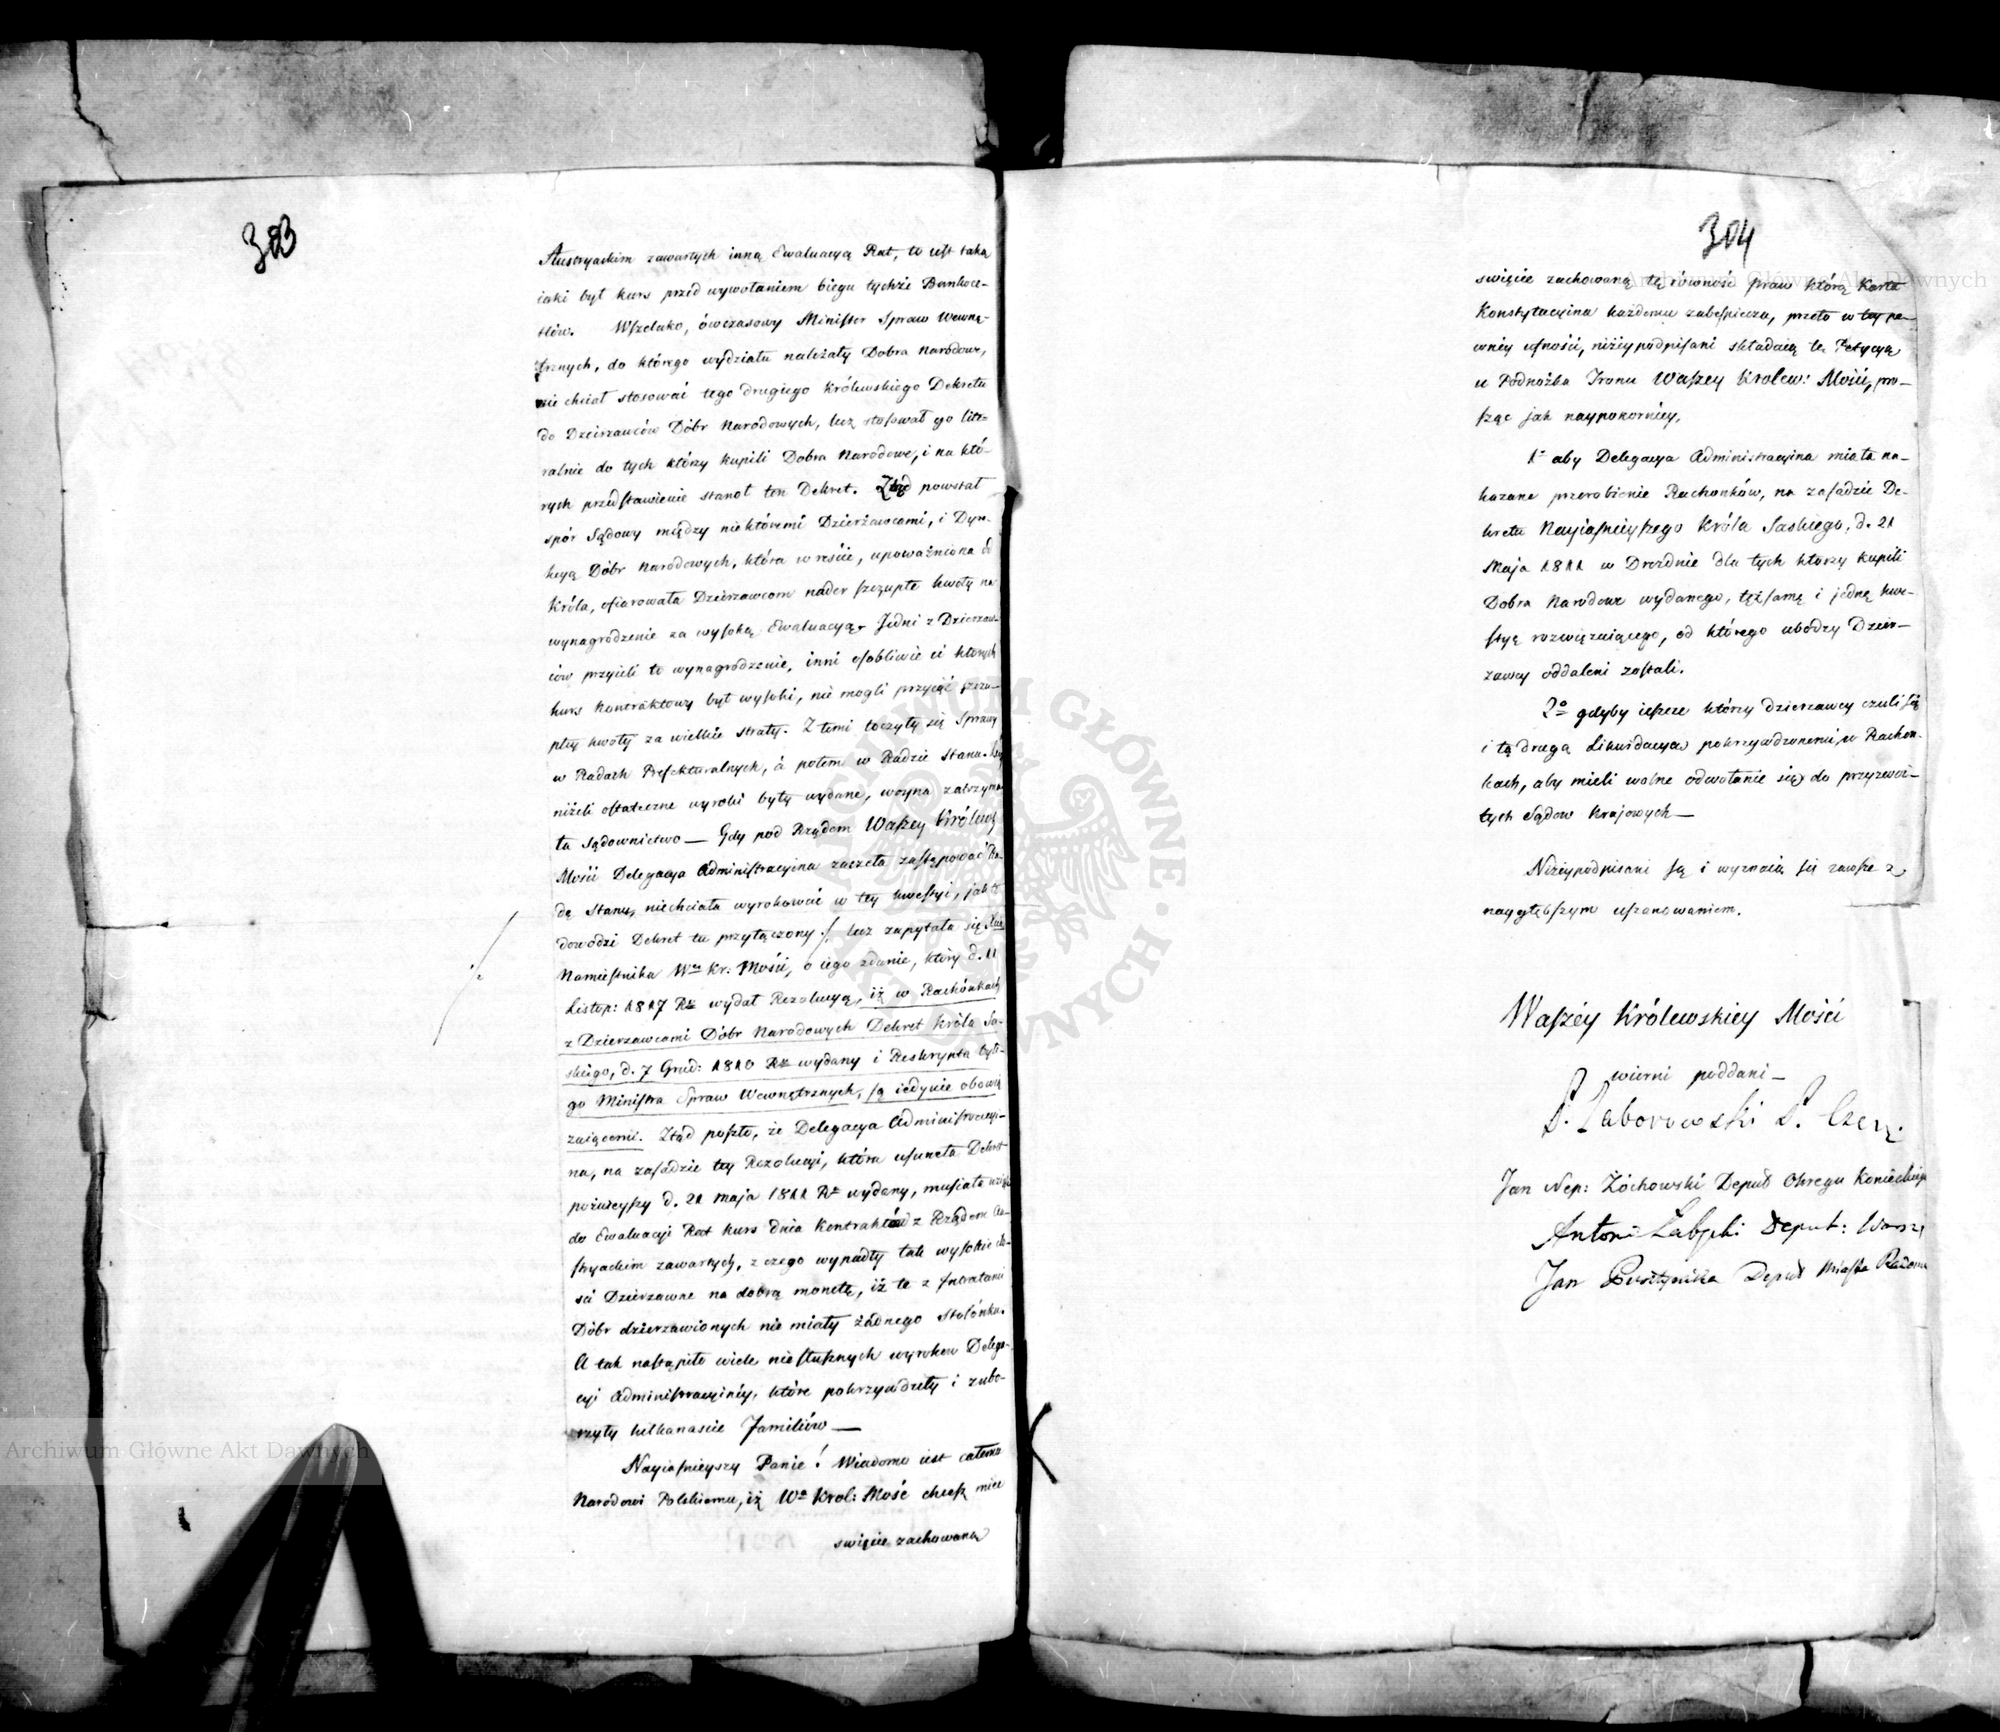 303
Austryackim zawartych inną Ewaluacyą Rat, to iest taką
iaki był kurs przed wywołaniem biegu tychże Bankoce-
tlów. Wszelako, ówczasowy Minister Spraw Wewnę-
trznych, do którego wydziału należały Dobra Narodowe,
nie chciał stosować tego drugiego Królewskiego Dekretu
do Dzierzawców Dóbr Narodowych, lecz stosował go lite-
ralnie do tych którzy kupili Dobra Narodowe, i na któ-
rych przedstawienie stanoł ten Dekret. Ztąd powstał
spór Sądowy między niektóremi Dzierżawcami, i Dyre-
kcyą Dóbr Narodowych, która w reście, upoważniona od
Króla, ofiarowała Dzierzawcom nader szczupłe kwoty na
wynagrodzenie za wysoką Ewaluacyą. Jedni z Dzierzaw-
ców przyieli to wynagrodzenie, inni osobliwie ci których
kurs Kontraktowy był wysoki, nie mogli przyiąć szczu-
płey kwoty za wielkie straty. Z temi toczyły się Sprawy
w Radach Prefekturalnych, á potem w Radzie Stanu.
niżeli ostateczne wyroki były wydane, woyna zatrzyma-
ła Sądownictwo — Gdy pod Rządem Waszey Królews
Mości Delegacya Administracyina zaczeła zastępować Ra-
dę Stanu, niechciała wyrokować w tey kwestyi, jak to
dowodzi Dekret tu przyłączony ./. lecz zapytała się Xcia
Namiestnika Wey Kr: Mości, o iego zdanie, który d. 11
Listop: 1817 Rku wydał Rezolucyą, iż w Rachónkach
z Dzierzawcami Dóbr Narodowych Dekret Króla Sa-
skiego, d. 7 Grud: 1810 Rku wydany i Reskrypta byłe-
go Ministra Spraw Wewnętrznych, są iedynie obowią
zuiącemi. Ztąd poszło, że Delegacya Administracyi-
na, na zasadzie tey Rezolucyi, która usuneła Dekret
pożnieyszy d. 21 Maja 1811 Rku wydany, musiała wziąć
do Ewaluacyi Rat kurs dnia Kontraktów z Rządem Au-
stryackim zawartych, z czego wypadły tak wysokie
ści Dzierzawne na dobrą monetę, iż te z Intratami
Dóbr dzierzawionych nie miały żadnego Stosónku.
A tak nastąpiło wiele niesłusznych wyroków Delega-
cyi Administracyiney, które pokrzywdzeły i zubo-
rzyły kilkanaście Familiów —
Nayiasnieyszy Panie! Wiadomo iest całemu
Narodowi Polskiemu, iż Wa Krol: Mość chcesz mieć
swięcie zachowaną
./.
304
swięcie zachowaną tę równość praw którą Karta
Konstytucyina każdemu zabespiecza, przeto w tey pe-
wney ufności, niżey podpisani składaią te Petycyą
u Podnożka Tronu Waszey Krolew: Mości, pro-
sząc jak naypokorniey,
1º aby Delegacya Administracyina miała na-
kazane przerobienie Rachonków, na zasadzie De-
kretu Nayiasnieyszego Króla Saskiego, d. 21
Maja 1811 w Dreżdnie dla tych ktorzy kupili
Dobra Narodowe wydanego, tęż samę i jednę kwe-
styą rozwięzuiącego, od którego ubodzy Dzier-
zawcy oddaleni zostali.
2º gdyby ieszcze którzy dzierzawcy czuli się
i tą drugą Likwidacyą pokrzywdzonemi w Rachon-
kach, aby mieli wolne odwołanie się do przyzwoi-
tych Sądow Krajowych —
Niżeypodpisani są i wyznaią się zawsze z
naygłębszym uszanowaniem.
Waszéy Królewskiey Mości
wierni poddani —
Jan Nep: Żóchowski Deput Okregu Konieckiego
Antoni Deput:
Jan Deput Miasta Radomia
Archiwum Główne Akt Dawnych
Archiwum Główne Akt Dawnych
ARCHIWUM GŁÓWNE AKT DAWNYCH